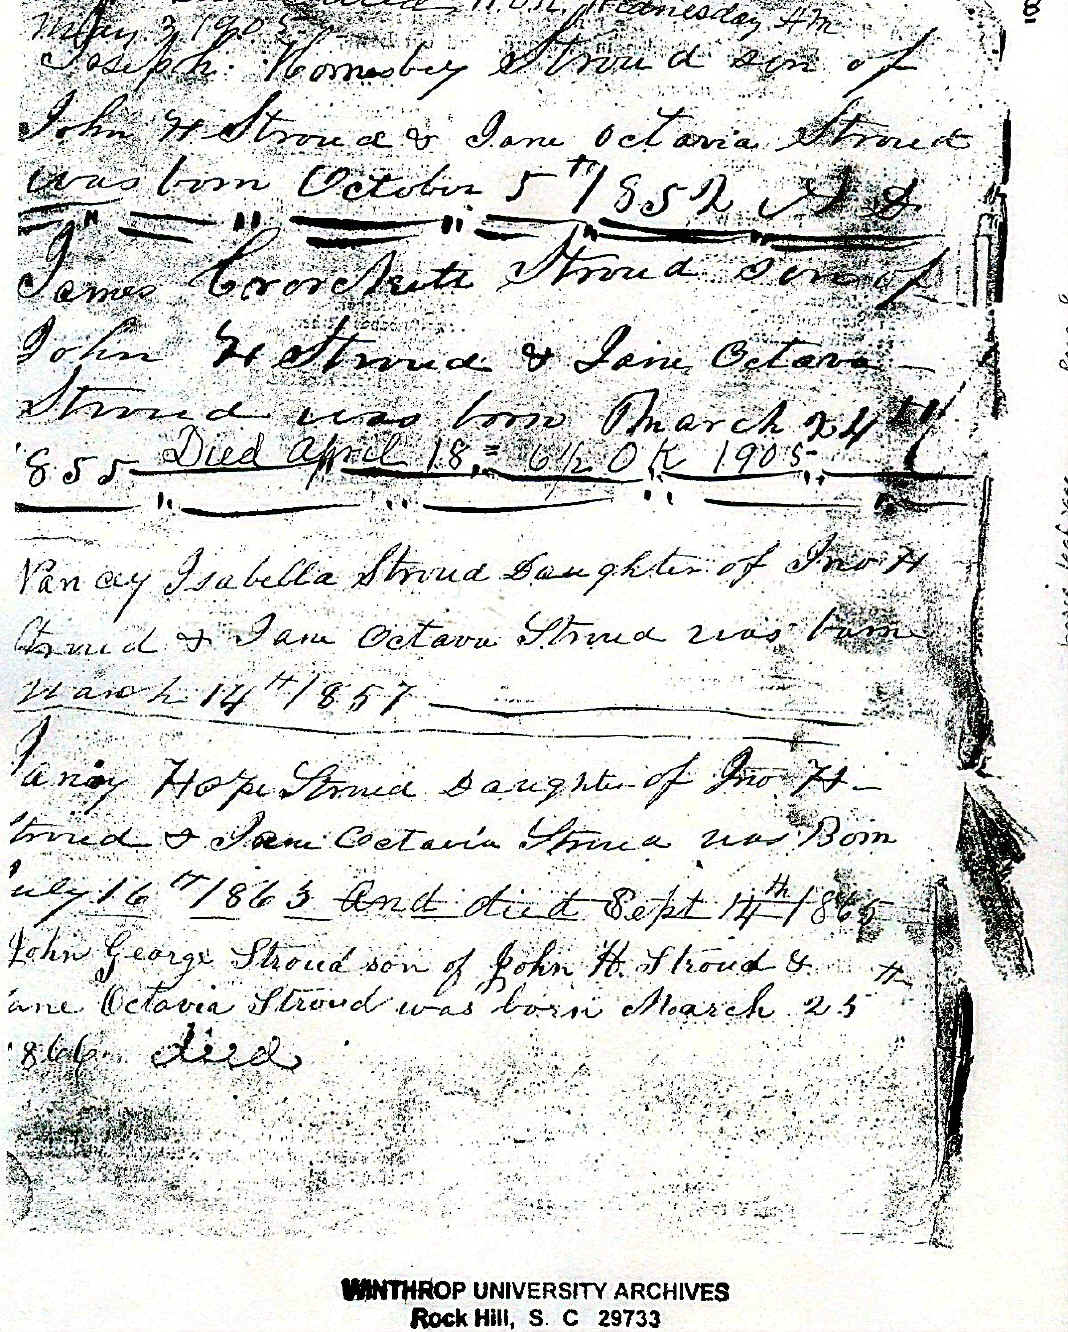 Wednesday 4 PM
May 3 1905
Joseph Hornsbey Stroud son of
John H Stroud & Jane Octavia Stroud
was born October 5th 1852 A D
James Stroud son of
John H Stroud & Jane Octava
Stroud was born March 24th
1855 Died April 18 = 6½ O K 1905
Nancy Isabella Stroud Daughter of Jno H
Stroud & Jane Octava Stroud was born
March 14th 1857
Nancy Hope Stroud Daughter of Jno H
Stroud & Jane Octavia Stroud was Born
July 16th 1863 And died Sept 14th 1865
John George Stroud son of John H. Stroud &
Jane Octavia Stroud was born March 25th
1866 died
WINTHROP UNIVERSITY ARCHIVES
Rock Hill, S. C 29733